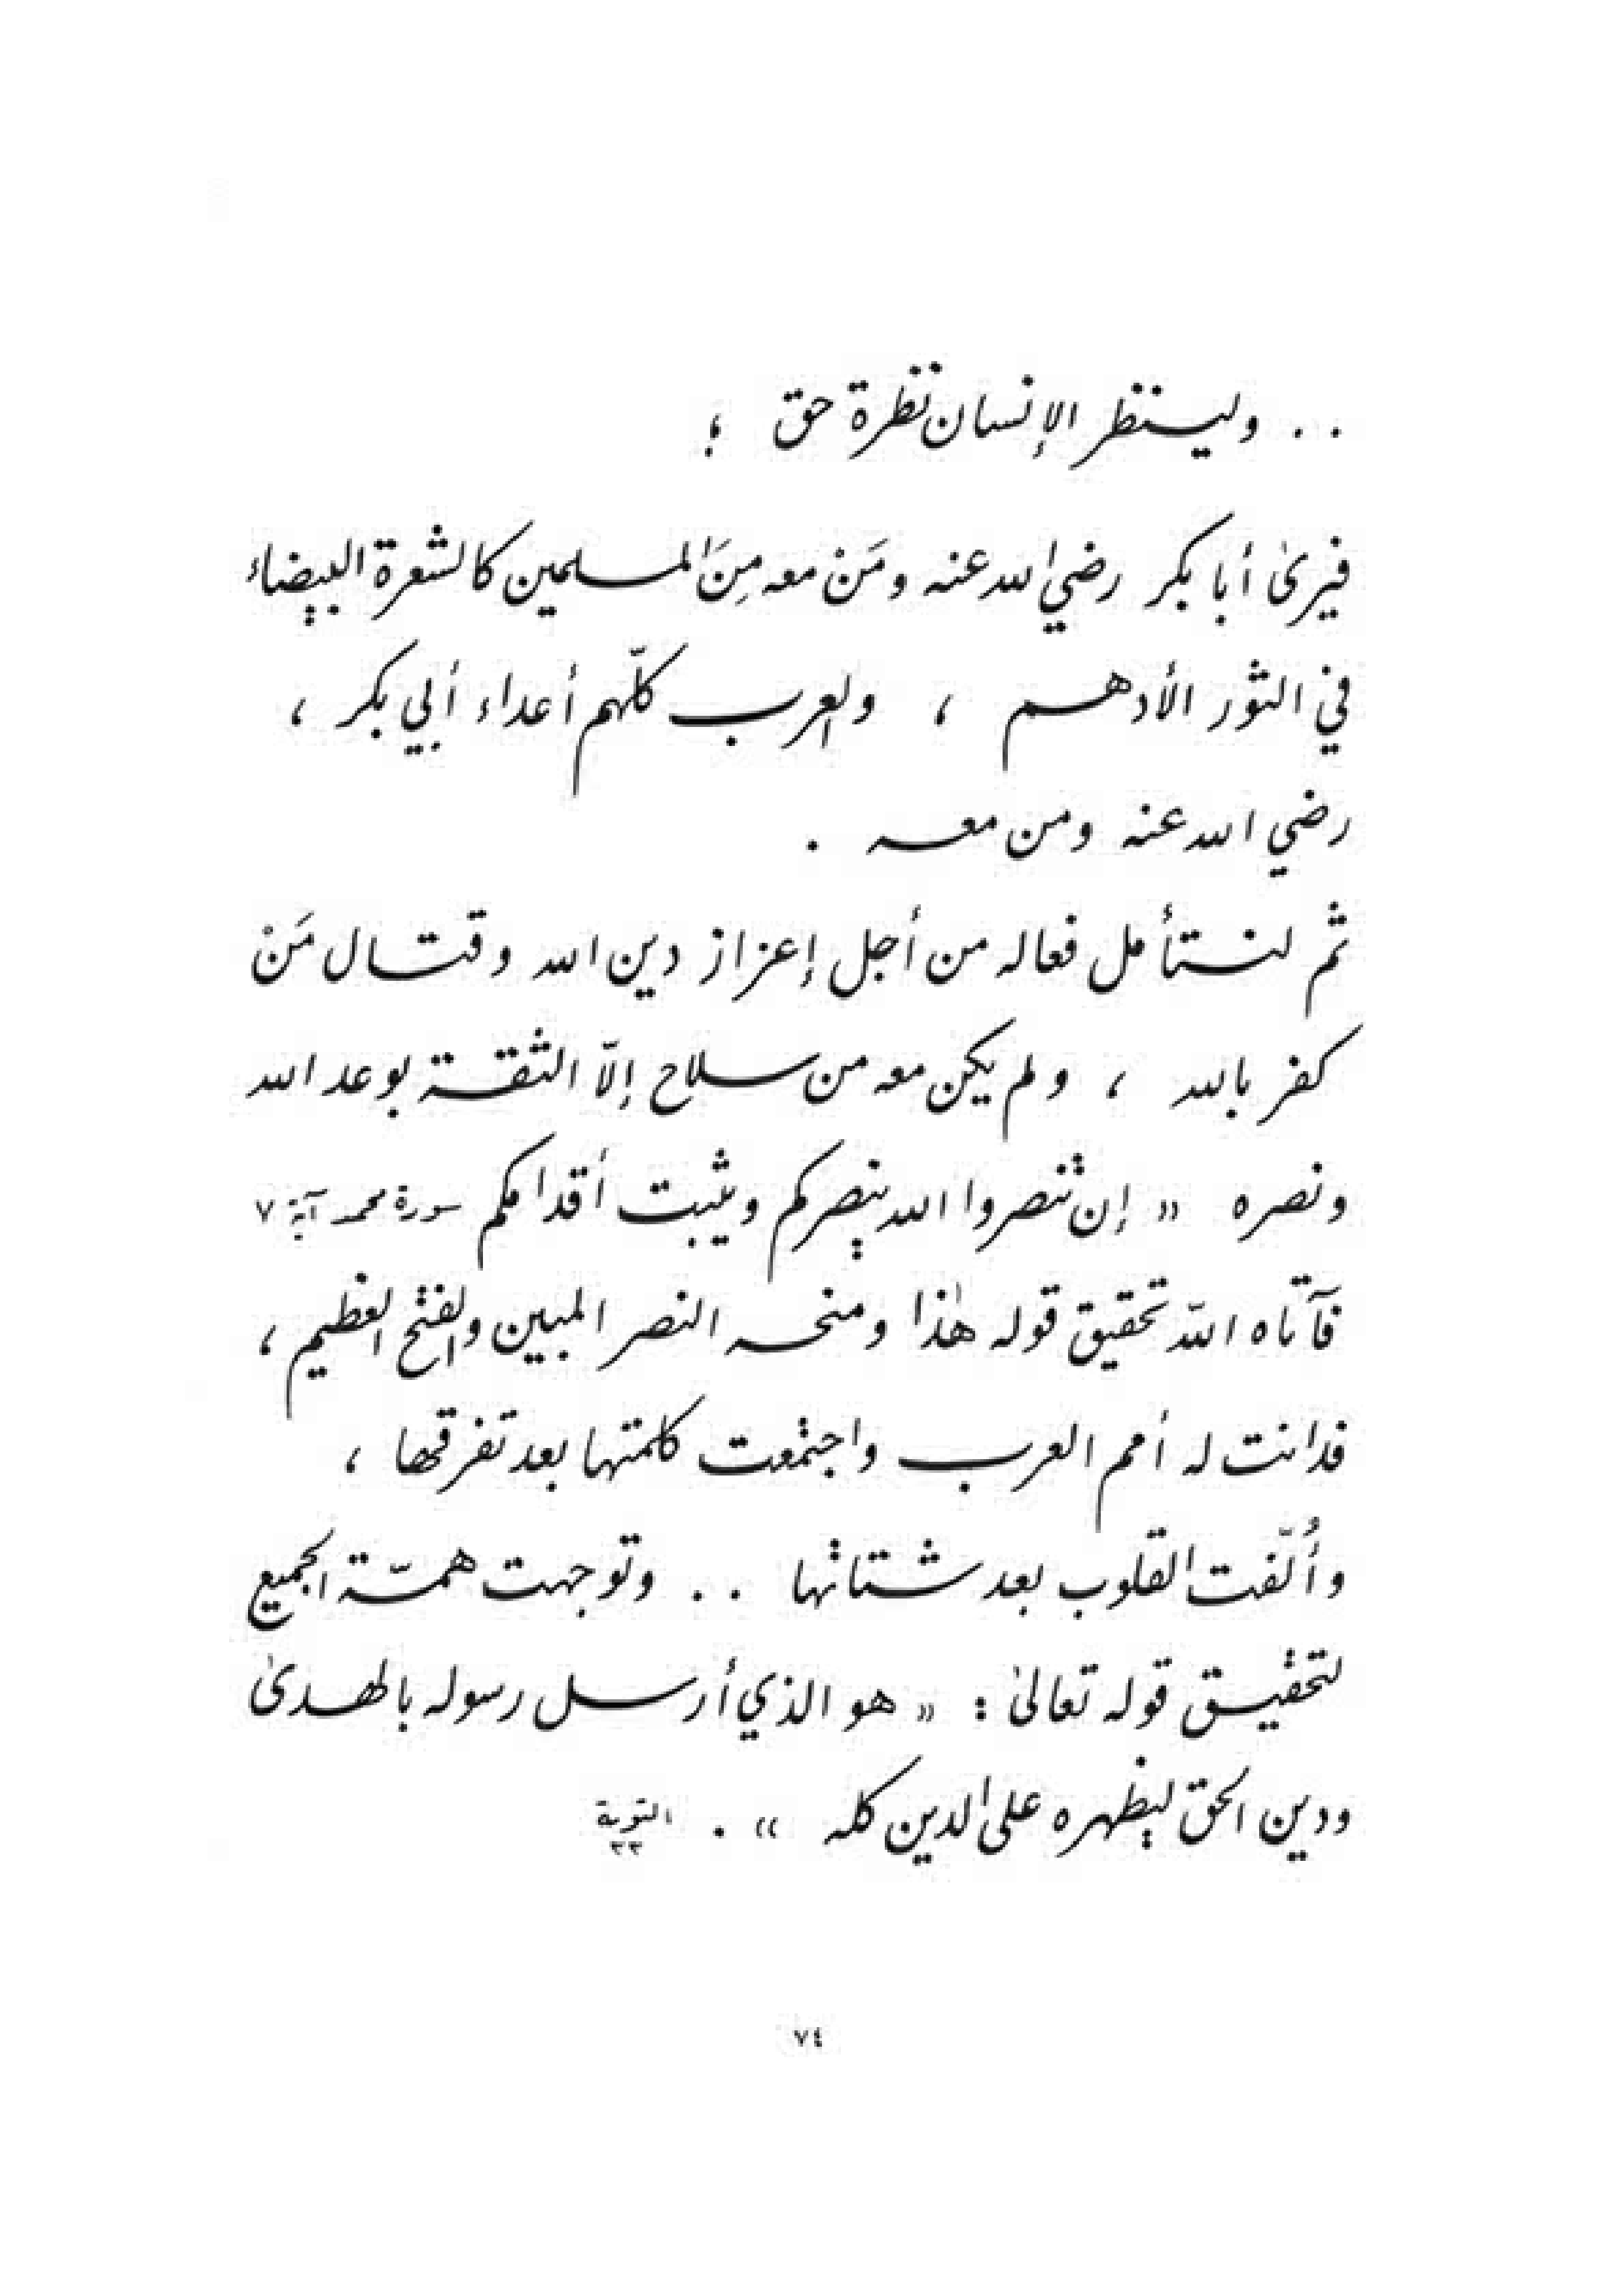 .. ولينظر الإنسان نظرة حق ؛
فيرىٰ أبا بكر رضي الله عنه ومَنْ معه مِنَ المسلمين كالشعرة البيضاء
في الثور الأدهم ، والعرب كلّهم أعداء أبي بكر ،
رضي الله عنه ومن معه .
ثم لنتأمل فعاله من أجل إعزاز دين الله وقتال مَنْ
كفر بالله ، ولم يكن معه من سلاح إلّا الثقة بوعد الله
ونصره « إن تنصروا الله ينصركم ويثبت أقدامكم سورة محمد آية ٧
فآتاه اللّه تحقيق قوله هٰذا ومنحه النصر المبين والفتح العظيم ،
فدانت له أمم العرب واجتمعت كلمتها بعد تفرقها ،
وأُلّفت القلوب بعد شتاتها .. وتوجهت همّة الجميع
لتحقيق قوله تعالىٰ : « هو الذي أرسل رسوله بالهدىٰ
ودين الحق ليظهره علىٰ الدين كله » . التوبة ٣٣
٧٤